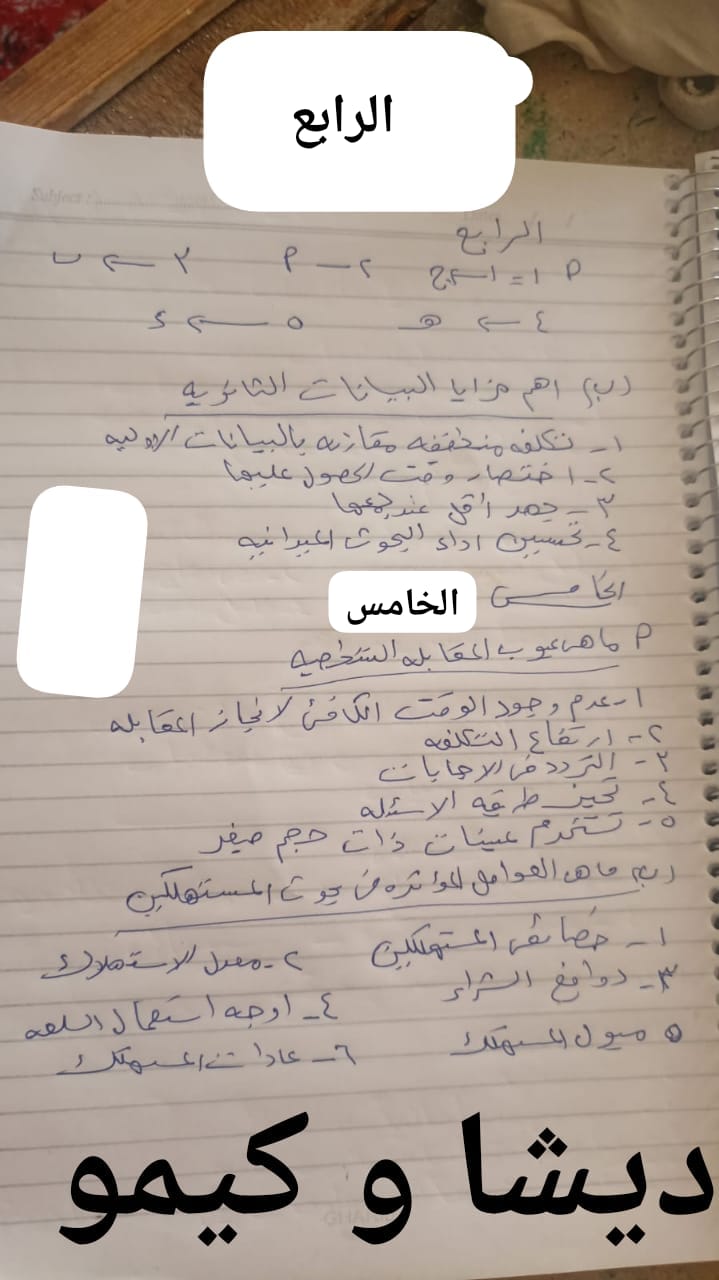 الرابع
Subject:
الرابع
م ١ = ا ← ج ٢ – م ٣ ← ب
٤ ← هـ ٥ ← د
(ب) اهم مزايا البيانات الثانويه
١- تكلفه منخفضه مقارنه بالبيانات الاوليه
٢- اختصار وقت الحصول عليها
٣- جهد أقل عند جمعها
٤- تحسين اداء البحوث الميدانيه
الخامس
الخامس
م ماهى عيوب المقابله الشخصيه
١- عدم وجود الوقت الكافى لانجاز المقابله
٢- ارتفاع التكلفه
٣- التردد فى الاجابات
٤- تحيز طريقه الاسئله
٥- تستخدم عينات ذات حجم صغير
(ب) ماهى العوامل المؤثره فى بحوث المستهلكين
١- خصائص المستهلكين ٢- معدل الاستهلاك
٣- دوافع الشراء ٤- اوجه استعمال السلعه
٥ ميول المستهلك ٦- عادات المستهلك
ديشا و كيمو